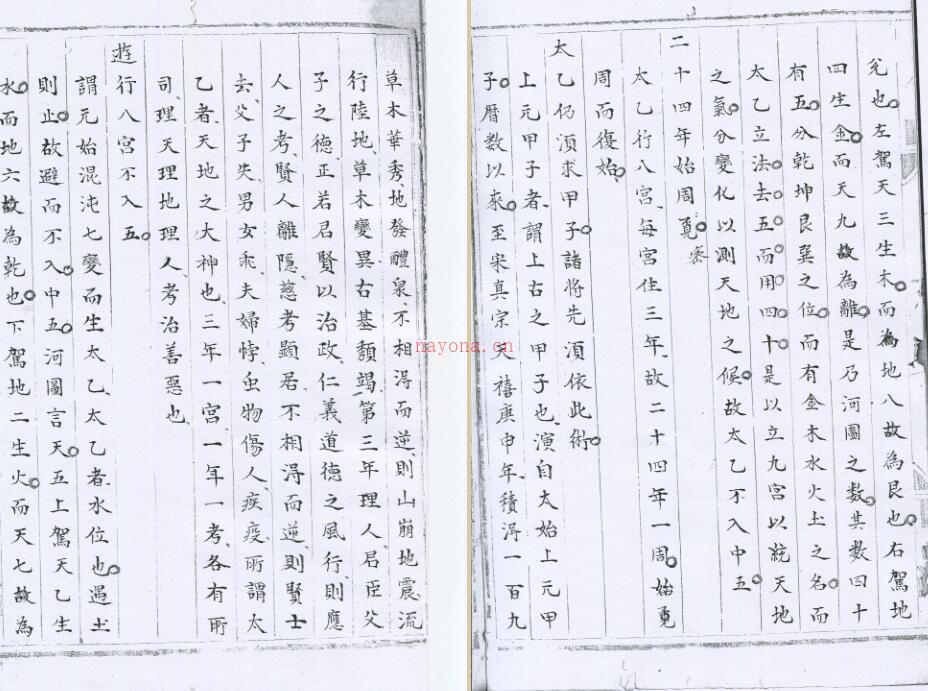 草木華秀、地發醴泉、不相淂而逆、則山崩地震流
行陸地、草木變異古墓頽竭、第三年理人、君臣父
子之德、正若君賢以治政、仁義道德之風行則應
人之考、賢人離隠、慈考顯居、不相淂而逆、則賢士
去、父子失、男女乖、夫婦悖、虫物傷人、疾疫、所謂太
乙者、天地之大神也、三年一宮、一年一考、各有所
司、理天理地理人、考治善惡也、
遊行八宮不入五。
謂元始混沌七變而生太乙、太乙者、水位也。遇土
則止。故避而不入。中五。河圖言天。五上駕天乙生
水。而地六故為乾也。下駕地二生火。而天七故為
兌也。左駕天三生木。而為地八故為艮也。右駕地
四生金。而天九故為離。是乃河圖之数。其數四十
有五。分乾坤艮巽之位。而有金木水火土之名。而
太乙立法。去。五。而。用。四。十。是以立九宮以統天地
之氣。分變化以測天地之候。故太乙不入中五。
二十四年始周覓。
太乙行八宮、每宮住三年、故二十四年一周。始覓
周而復始。
太乙仍湏求甲子。諸將先湏依此術。
上元甲子者、謂上古之甲子也、演自太始上元甲
子。暦數以来。至宋真宗天禧庚申年、積得一百九
nayona.cn